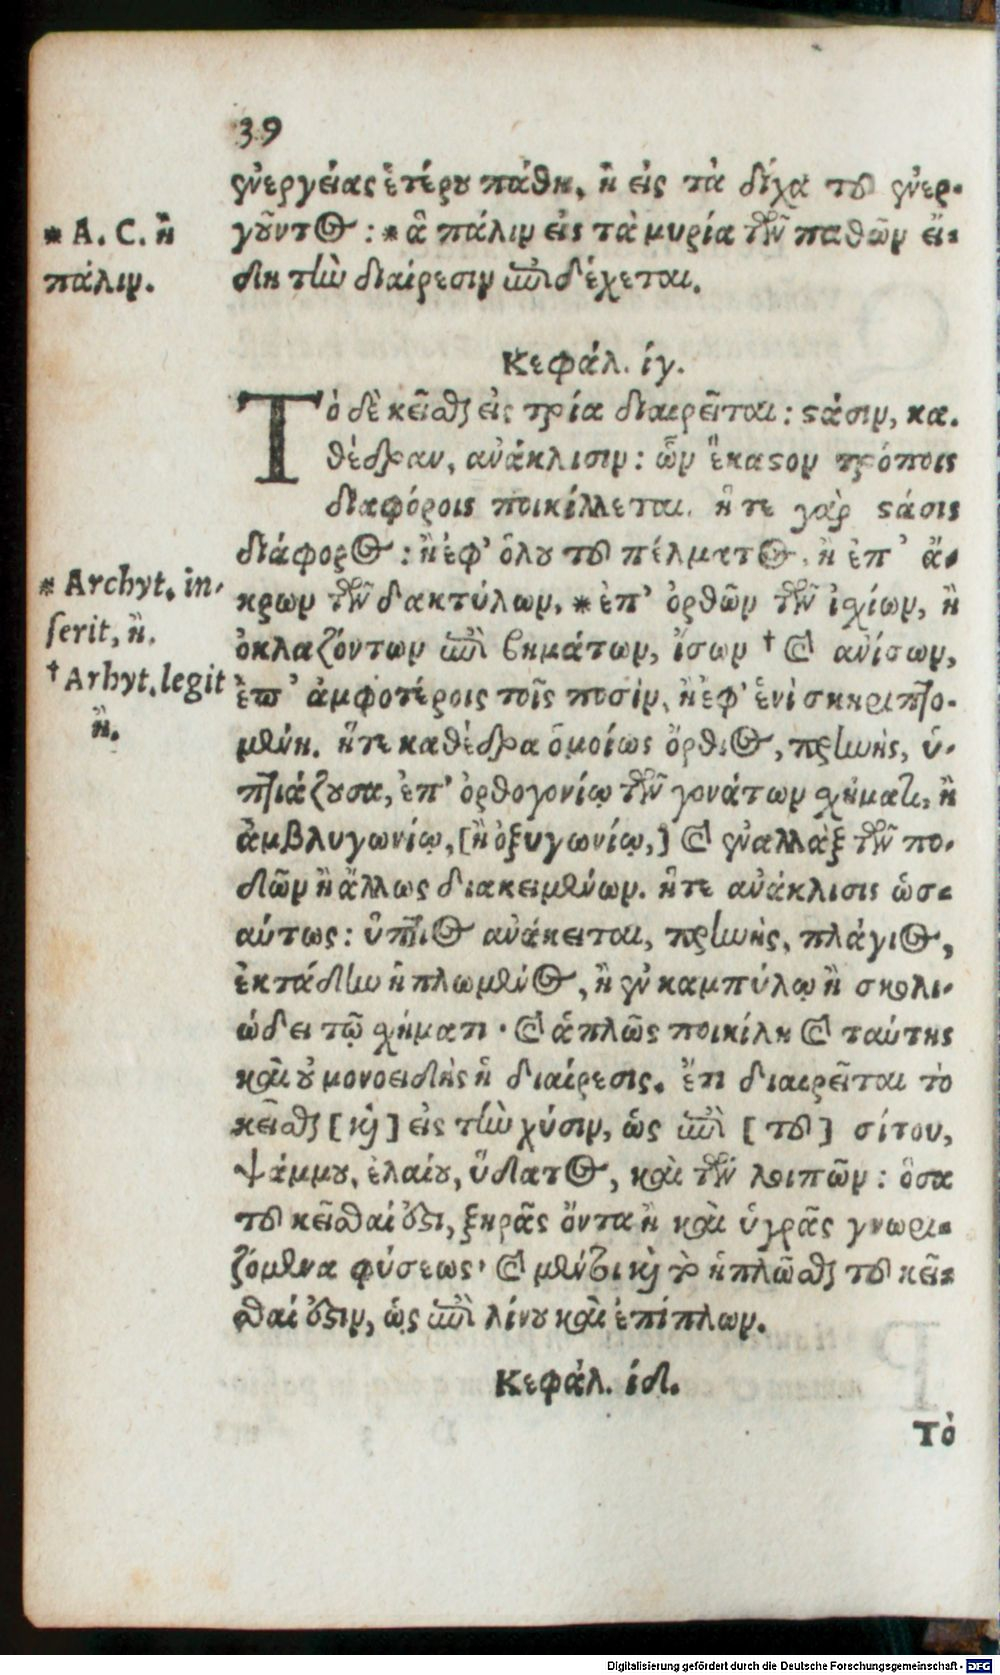 39
ἐνεργείας ἑτέρου πάθη, ἢ εἰς τὰ δίχα τοῦ ἐνερ-
* A. C. ἢ
πάλιν.
γοῦντος : * ἃ πάλιν εἰς τὰ μυρία τῶν παθῶν εἴ-
δη τὴν διαίρεσιν ὑποδέχεται.
Κεφάλ. ιγ.
Τὸ δὲ κεῖσθαι εἰς τρία διαιρεῖται : στάσιν, κα-
θέδραν, ἀνάκλισιν : ὧν ἕκαστον τρόποις
διαφόροις ποικίλλεται. ἥ τε γὰρ στάσις
διάφορος : ἢ ἐφ' ὅλου τοῦ πέλματος, ἢ ἐπ' ἄ-
* Archyt. in-
serit, ἢ.
κρων τῶν δακτύλων, * ἐπ' ὀρθῶν τῶν ἰσχίων, ἢ
ὀκλαζόντων ὑπὸ βημάτων, ἴσων † καὶ ἀνίσων,
† Arhyt. legit
ἢ.
ἐπ' ἀμφοτέροις τοῖς ποσὶν, ἢ ἐφ' ἑνὶ σκηριπτο-
μένη. ἥτε καθέδρα ὁμοίως ὄρθιος, πρηνὴς, ὑ-
πτιάζουσα, ἐπ' ὀρθογονίῳ τῶν γονάτων σχήματι, ἢ
ἀμβλυγωνίῳ, [ἢ ὀξυγωνίῳ,] καὶ ἐναλλὰξ τῶν πο-
δῶν ἢ ἄλλως διακειμένων. ἥτε ἀνάκλισις ὡσ-
αύτως : ὕπτιος ἀνάκειται, πρηνὴς, πλάγιος,
ἐκτάδην ἡπλωμένος, ἢ ἐν καμπύλῳ ἢ σκολι-
ώδει τῷ σχήματι · καὶ ἁπλῶς ποικίλη καὶ ταύτης
καὶ οὐ μονοειδὴς ἡ διαίρεσις. ἔτι διαιρεῖται τὸ
κεῖσθαι [καὶ] εἰς τὴν χύσιν, ὡς ὑπὸ [τοῦ] σίτου,
ψάμμου, ἐλαίου, ὕδατος, καὶ τῶν λοιπῶν : ὅσα
τοῦ κεῖσθαί ἐστι, ξηρᾶς ὄντα ἢ καὶ ὑγρᾶς γνωρι-
ζόμενα φύσεως · καὶ μέντοι καὶ τὸ ἡπλῶσθαι τοῦ κεῖ-
σθαί ἐστιν, ὡς ὑπὸ λίνου καὶ ἐπίπλων.
Κεφάλ. ιδ.
Τὸ
Digitalisierung gefördert durch die Deutsche Forschungsgemeinschaft - DFG